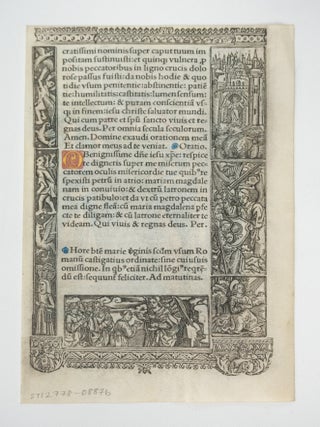 cratissimi nominis super caput tuum im
positam sustinuisti: et quinq; vulnera p
nobis peccatoribus in ligno crucis dolo
rose passus fuisti: da nobis hodie & quo
die vsum penitentie: abstinentie: patiē
tie: humilitatis: castitatis: lumen: sensum:
te intellectum: & putam conscientiā vs
q; in finem: iesu christe saluator mundi.
Qui cum patre et spū sancto viuis et re
gnas deus. Per omnia secula seculorum.
Amen. Domine exaudi orationem meā
Et clamor meus ad te veniat. Oratio.
O Benignissime dñe iesu xpe: respice
te digneris super me miserum pec
catorem oculis misericordie tue quibꝰ re
spexisti petrū in atrio: mariā magdalenam
in conuiuio: & dextrū latronem in
crucis patibulo: et da vt cū petro peccata
mea digne fleā: cū maria magdalena pfe
cte te diligam: & cū latrone eternaliter te
videam. Qui viuis & regnas deus. Per.
Hore btē marie vginis scdm vsum Ro
manū castigatius ordinate: sine cuiusuis
omissione. In qbꝰ etiā nichil lōgi reqrē
dū est: sequunt feliciter. Ad matutinas.
ST12778-08876